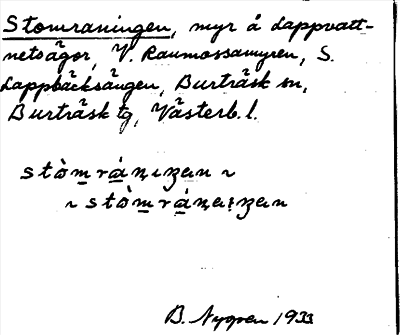 Stomraningen, myr å Lappvatt-
netsägor, V. Raumossamyren, S.
Lappbäcksängen, Burträsk sn,
Burträsk tg, Västerb. l.
stòm
~ stòm
B. Nygren 1933